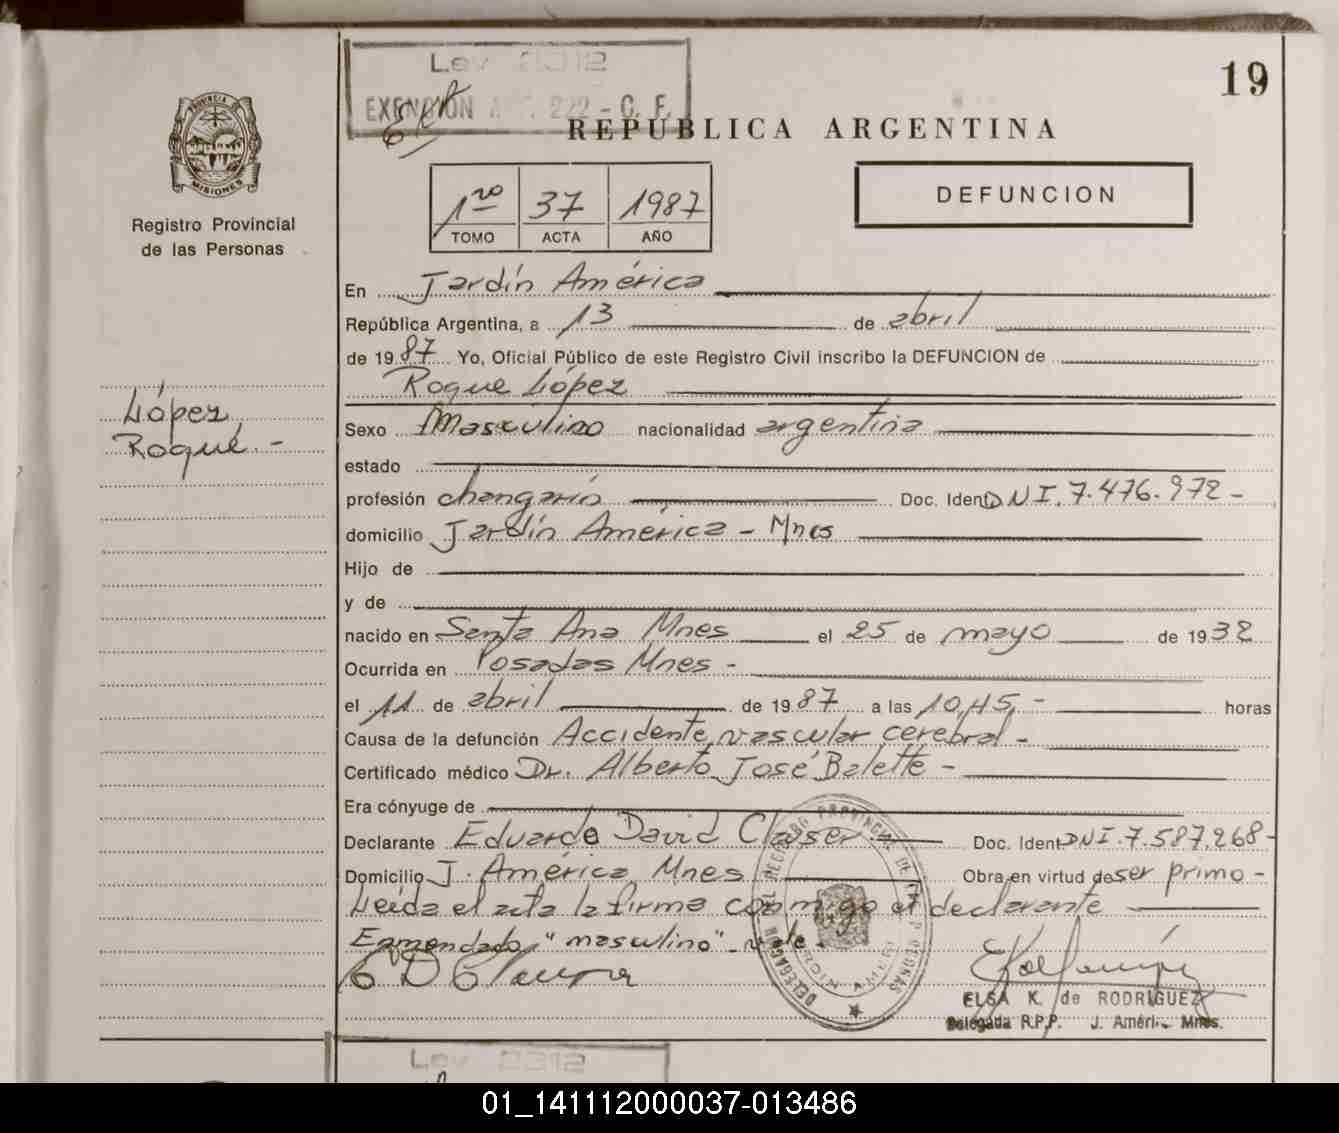 Ley 2312
EXENCIÓN A 222 - C. F.
19
REPUBLICA ARGENTINA
PROVINCIA DE MISIONES
Registro Provincial
de las Personas
1ro 37 1987
TOMO ACTA AÑO
DEFUNCION
En Jardín América
República Argentina, a 13 de abril
de 1987 Yo, Oficial Público de este Registro Civil inscribo la DEFUNCION de
Roque López
López
Roque.-
Sexo Masculino nacionalidad argentina
estado
profesión changarín Doc. Ident DNI.7.476.972-
domicilio Jardín América - Mnes
Hijo de
y de
nacido en Santa Ana Mnes el 25 de mayo de 1932
Ocurrida en Posadas Mnes -
el 11 de abril de 1987 a las 10,45,- horas
Causa de la defunción Accidente vascular cerebral -
Certificado médico Dr. Alberto José Balette -
Era cónyuge de
Declarante Eduardo David Doc. Ident DNI.7.587.268-
Domicilio J. América Mnes Obra en virtud de ser primo -
Leída el acta la firma conmigo el declarante
Enmendado, "masculino" vale.
DELEGACION DEL REGISTRO PROVINCIAL DE LAS PERSONAS
ELSA K. de RODRIGUEZ
Delegada R.P.P. J. Améri. Mnes.
Ley 2312
01_141112000037-013486